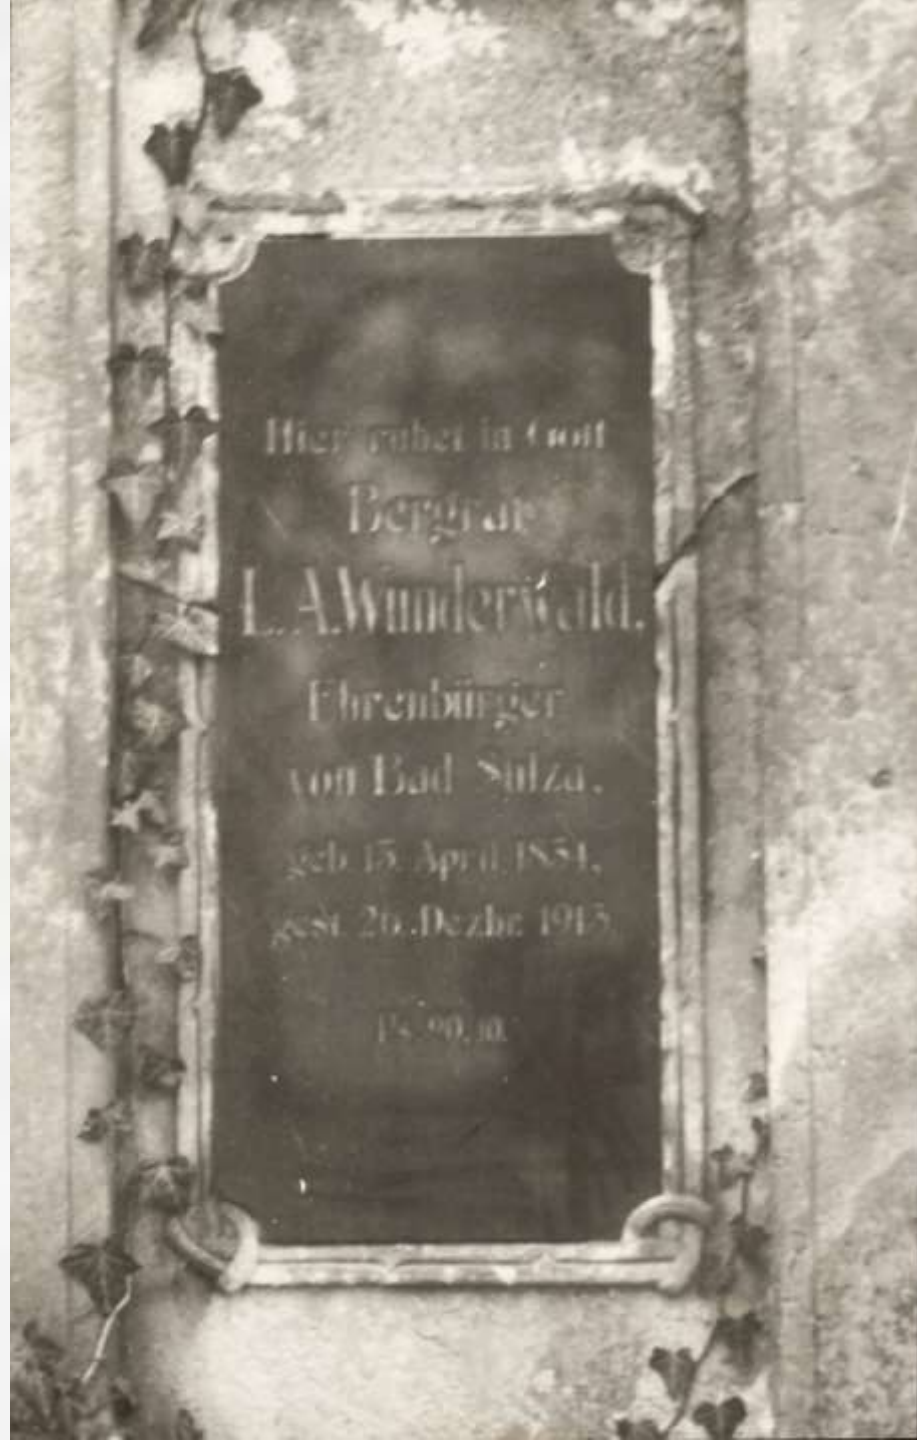 Hier ruhet in Gott
Bergrat
L. A. Wunderwald,
Ehrenbürger
von Bad Sulza,
geb. 15. April 1834,
gest. 26. Dezbr. 1913.
Ps. 90, 10.